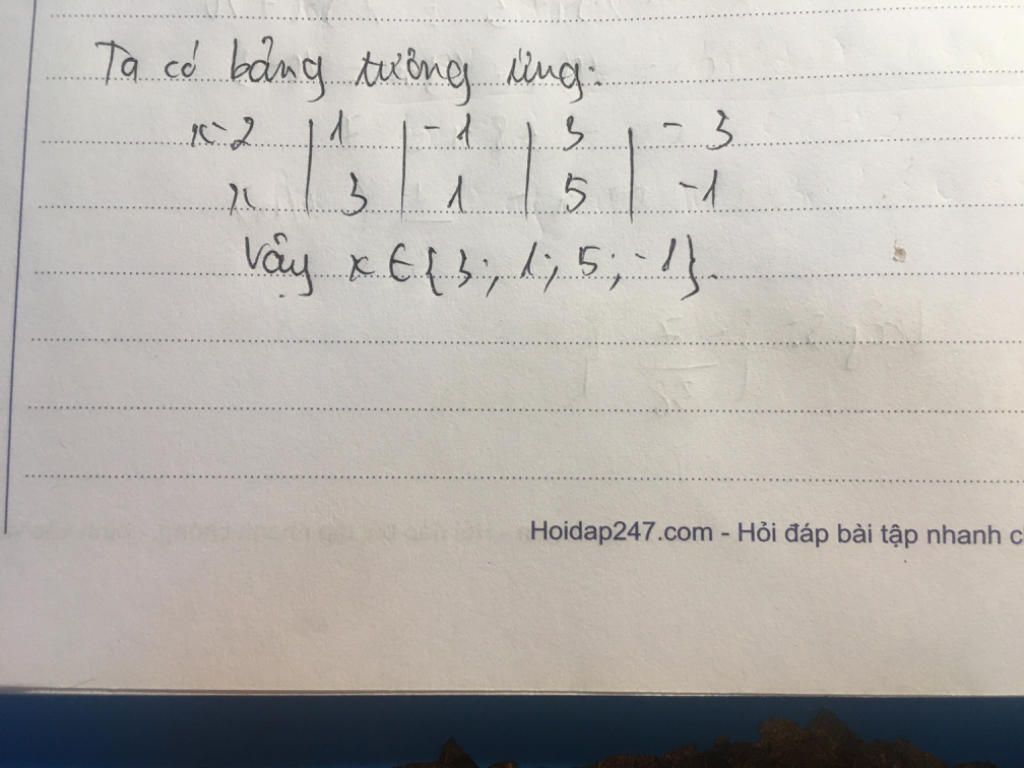 Ta có bảng tương ứng:
x-2 | 1 | -1 | 3 | -3
x | 3 | 1 | 5 | -1
Vậy x ∈ {3; 1; 5; -1}.
Hoidap247.com - Hỏi đáp bài tập nhanh c